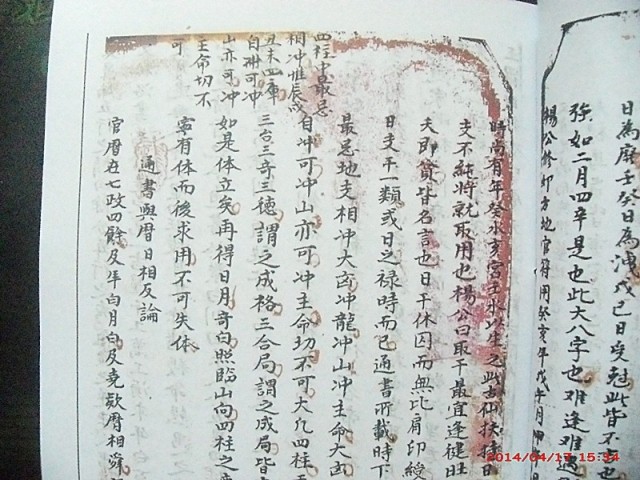 日為廢壬癸日為洩戊己日受尅此皆不
強如二月四辛是也此大八字也难逢难遇
楊公修卯方地官符用癸亥年戊午月
時尚有年癸水亥宮壬水以生之此古仙扶
支不純特就取用也楊公曰取干最宜逢徤旺
夭即貧皆名言也日干休囚而無比肩印綬
日支干一類或日之禄時而已通書所載時下
最忌地支相冲大凶冲龍冲山冲主命大凶
自冲可冲山亦可冲主命切不可大凡四柱
三台三奇三德謂之成格三合局謂之成局皆
如是体立矣再得日月奇白照臨山向四柱之
寧有体而後求用不可失体
通書與曆日相反論
官曆在七政四餘及年白月白及堯歒曆相舜
四柱中最忌
相冲惟辰戌
丑未四庫
自冊可冲
山亦可冲
主命切不
可
2014/04/17 15:54